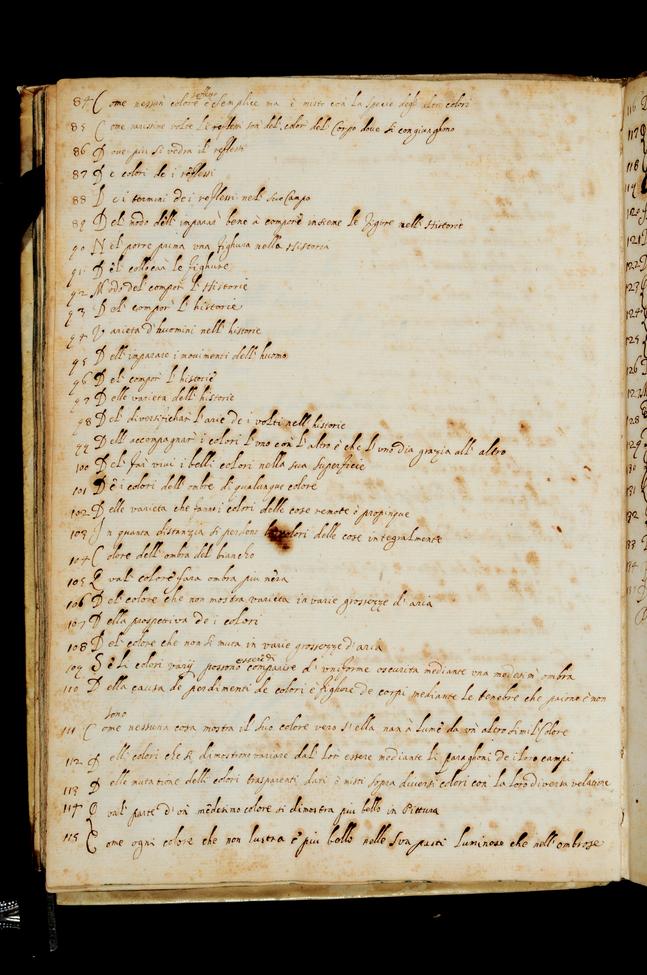 84 Come nessun colore reflesso è semplice ma è misto con la specie degli altri colori
85 Come rarissime volte li reflessi son del color del Corpo doue si congiunghono
86 Doue piu si vedra il reflesso
87 De colori de i reflessi
88 De i termini de i reflessi nel suo Campo
89 Del modo dell' imparar bene à comporre insieme le figure nell' Historie
90 Nel porre prima vna fighura nella Historia
91 Del collocar le fighure
92 Modo del compor l' Historie
93 Del compor l' historie
94 Varietà d' huomini nell' historie
95 Dell' imparare i mouimenti dell' huomo
96 Del compor l' historie
97 Delle varietà dell' historie
98 Del diuersifichar l' arie de i volti nell' historie
99 Dell' accompagnar i colori l' vno con l' altro è che l' vno dia grazia all' altro
100 Del far viui i belli colori nella sua superficie
101 De i colori dell' ombre di qualunque colore
102 Delle varietà che fanno i colori delle cose remote è propinque
103 In quanta distanzia si perdono li colori delle cose integralmente
104 Colore dell' ombra del biancho
105 Qual colore fara ombra piu nera
106 Del colore che non mostra varietà in varie grossezze d' aria
107 Della prospettiua de i colori
108 Del colore che non si muta in varie grossezze d' aria
109 Se li colori varij possono essere ò comparire d' vniforme oscurità mediante vna medesim' ombra
110 Della causa de perdimenti de colori è fighure de corpi mediante le tenebre che paiono è non
sono
111 Come nessuna cosa mostra il suo colore vero s' ella non à lume da vn altro simil Colore
112 Delli colori che si dimostrono variare dal loro essere mediante li paraghoni de i loro campi
113 Delle mutatione delli colori trasparenti dati è misti sopra diuersi colori con la loro diuersa velatione
114 Qual parte d' un medesimo colore si dimostra piu bello in Pittura
115 Come ogni colore che non lustra è piu bello nelle sua parti luminose che nell' ombrose
116
117
118